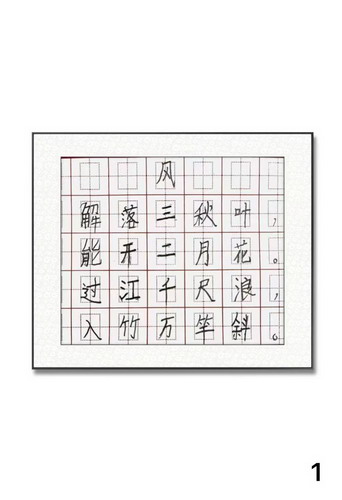 风
解落三秋叶，
能开二月花。
过江千尺浪，
入竹万竿斜。
1